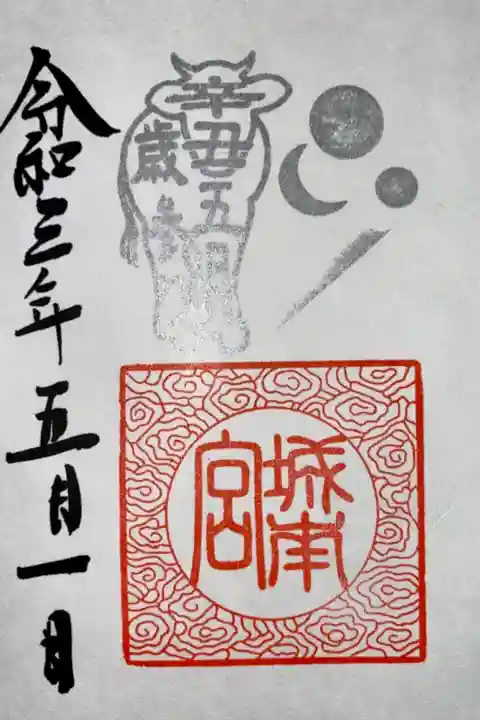 辛丑五月
歳
城南
宮
令和三年五月一日